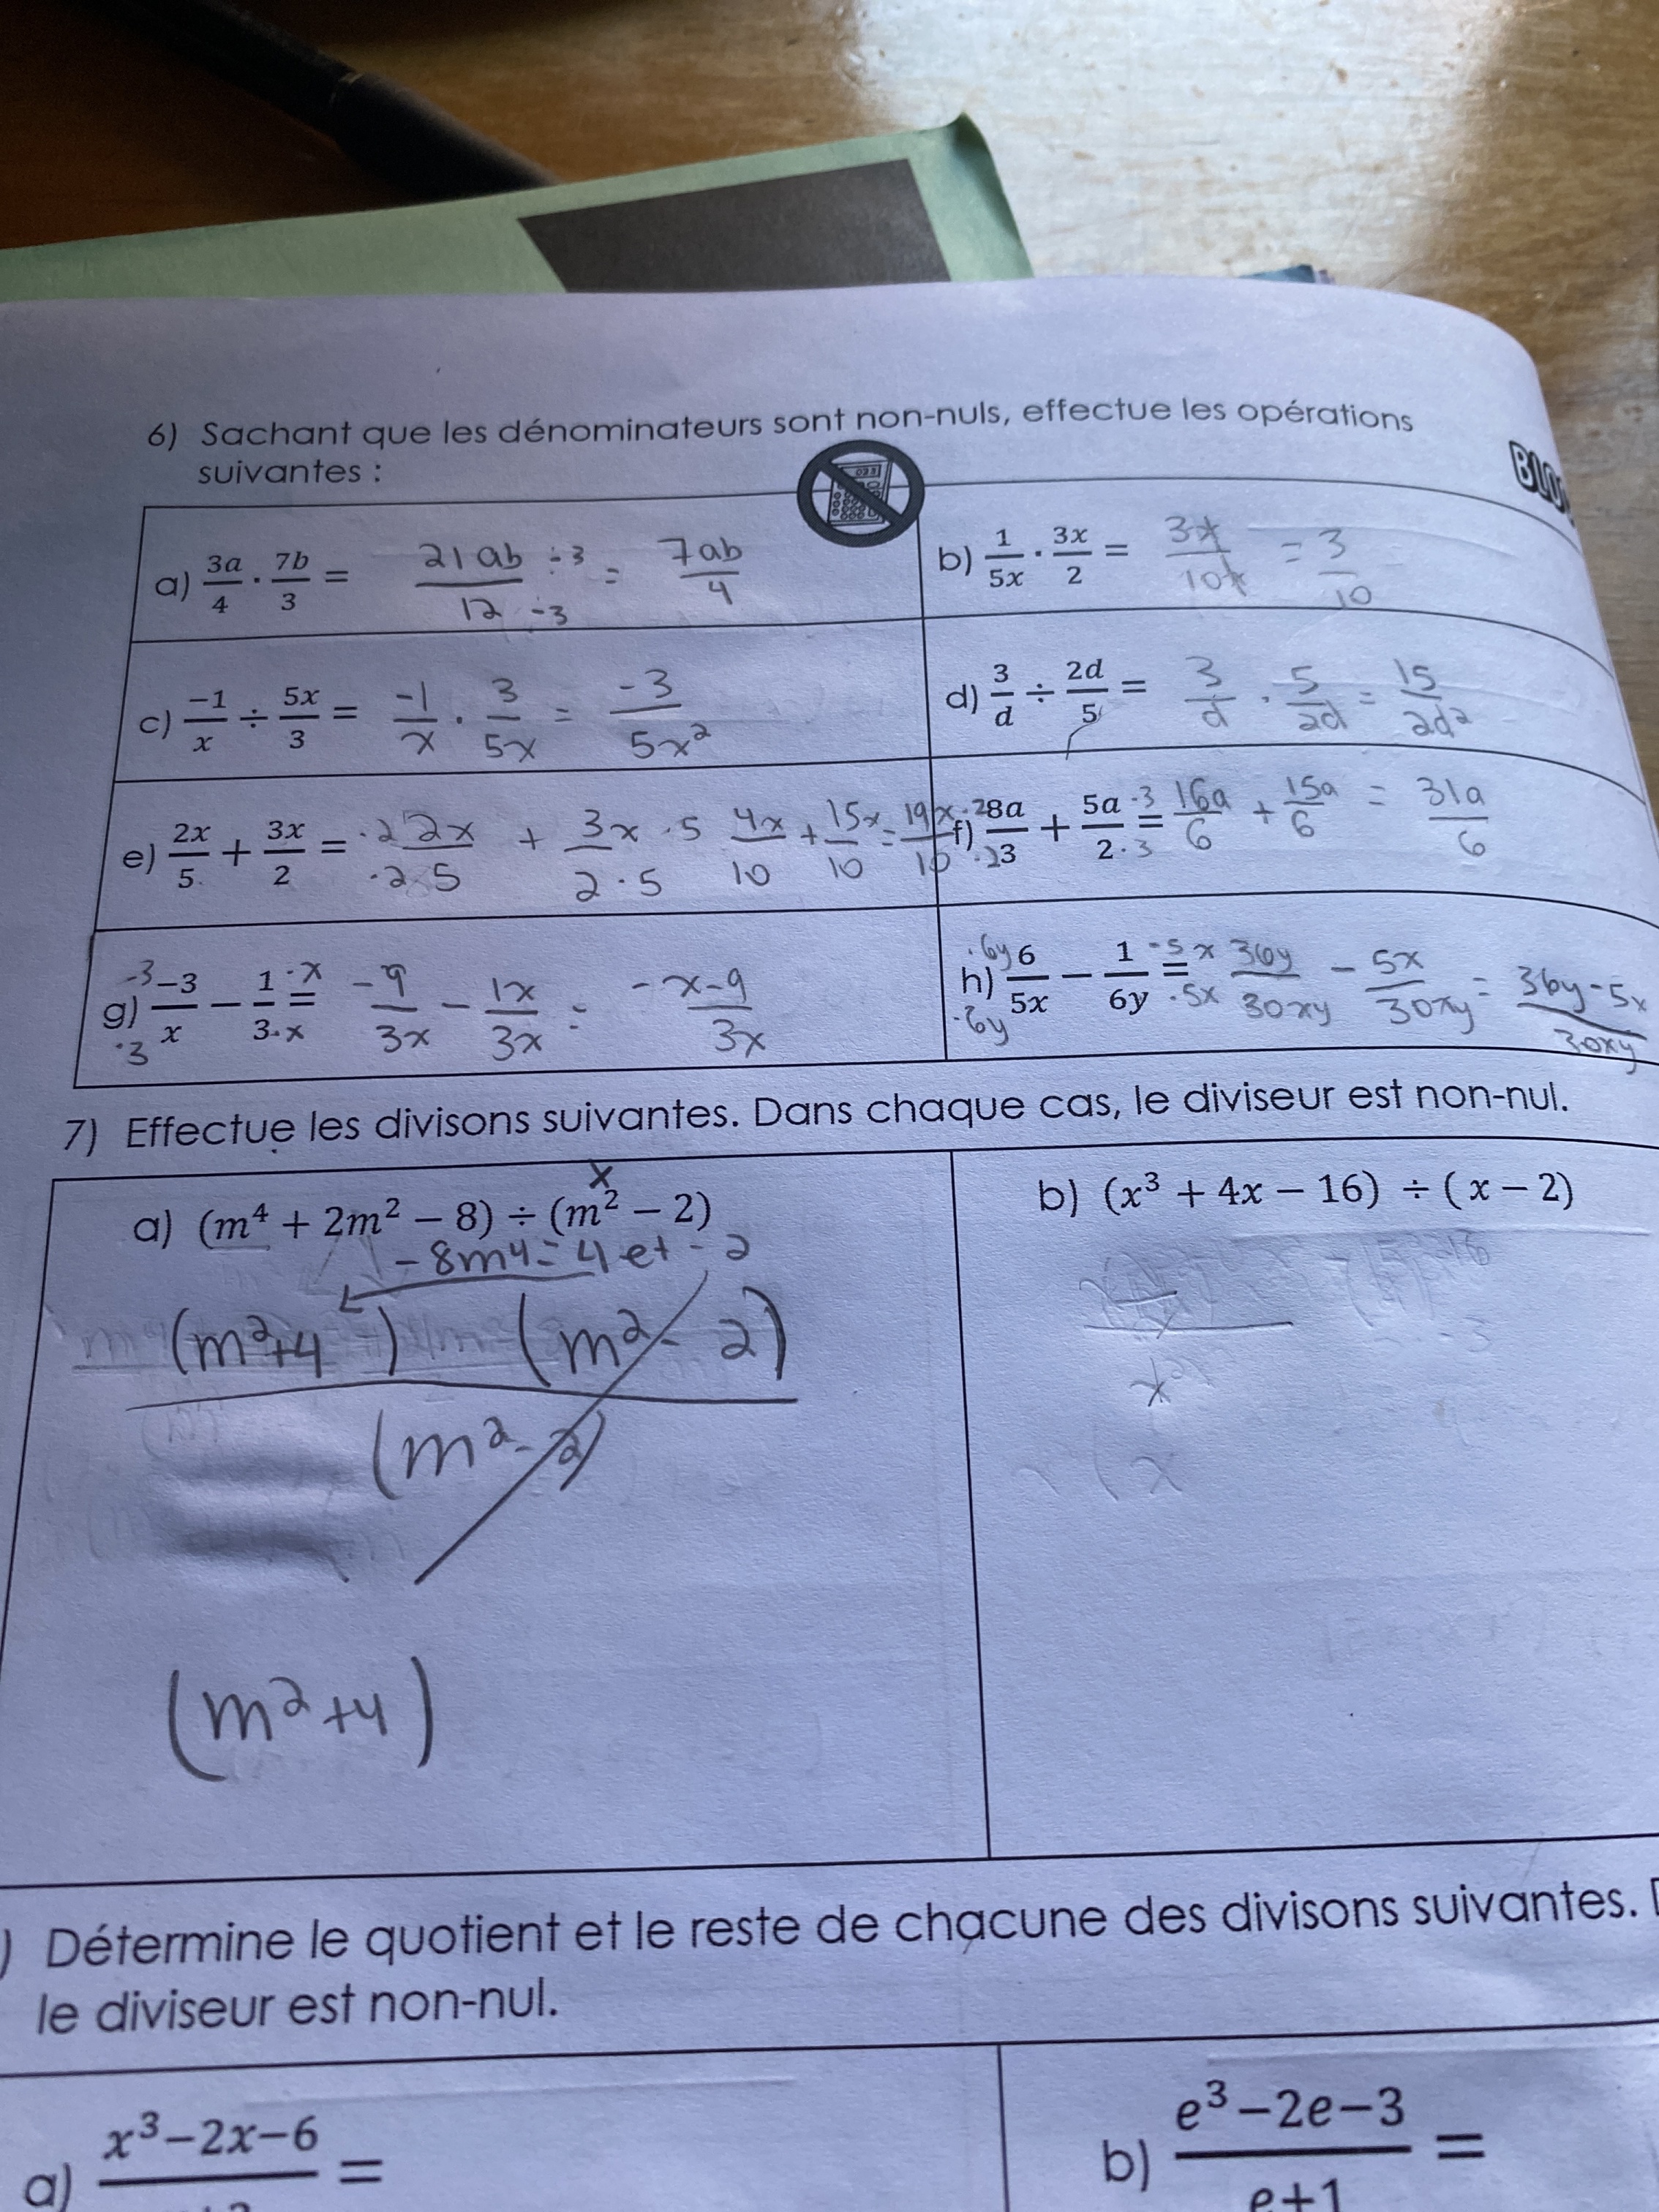 6) Sachant que les dénominateurs sont non-nuls, effectue les opérations
suivantes :
BLO
a) 3a/4 · 7b/3 = 21ab ÷3 / 12 ÷3 = 7ab/4
b) 1/5x · 3x/2 = 3x/10x = 3/10
c) −1/x ÷ 5x/3 = -1/x · 3/5x = -3/5x²
d) 3/d ÷ 2d/5 = 3/d · 5/2d = 15/2d²
e) 2x/5 + 3x/2 = ·2 2x/·2 5 + 3x·5/2·5 4x/10 + 15x/10 = 19x/10
f) ·2 8a/·2 3 + 5a·3/2·3 = 16a/6 + 15a/6 = 31a/6
g) ·3 −3/·3 x − 1·x/3·x = -9/3x - 1x/3x = -x-9/3x
h) ·6y 6/·6y 5x − 1·5x/6y·5x = 36y/30xy - 5x/30xy = 36y-5x/30xy
7) Effectue les divisons suivantes. Dans chaque cas, le diviseur est non-nul.
x
a) (m⁴ + 2m² − 8) ÷ (m² − 2)
-8m4=4 et -2
(m²+4) (m²-2)
(m²-2)
(m²+4)
b) (x³ + 4x − 16) ÷ (x − 2)
) Détermine le quotient et le reste de chacune des divisons suivantes. D
le diviseur est non-nul.
a) x³−2x−6 =
b) e³−2e−3/e+1 =